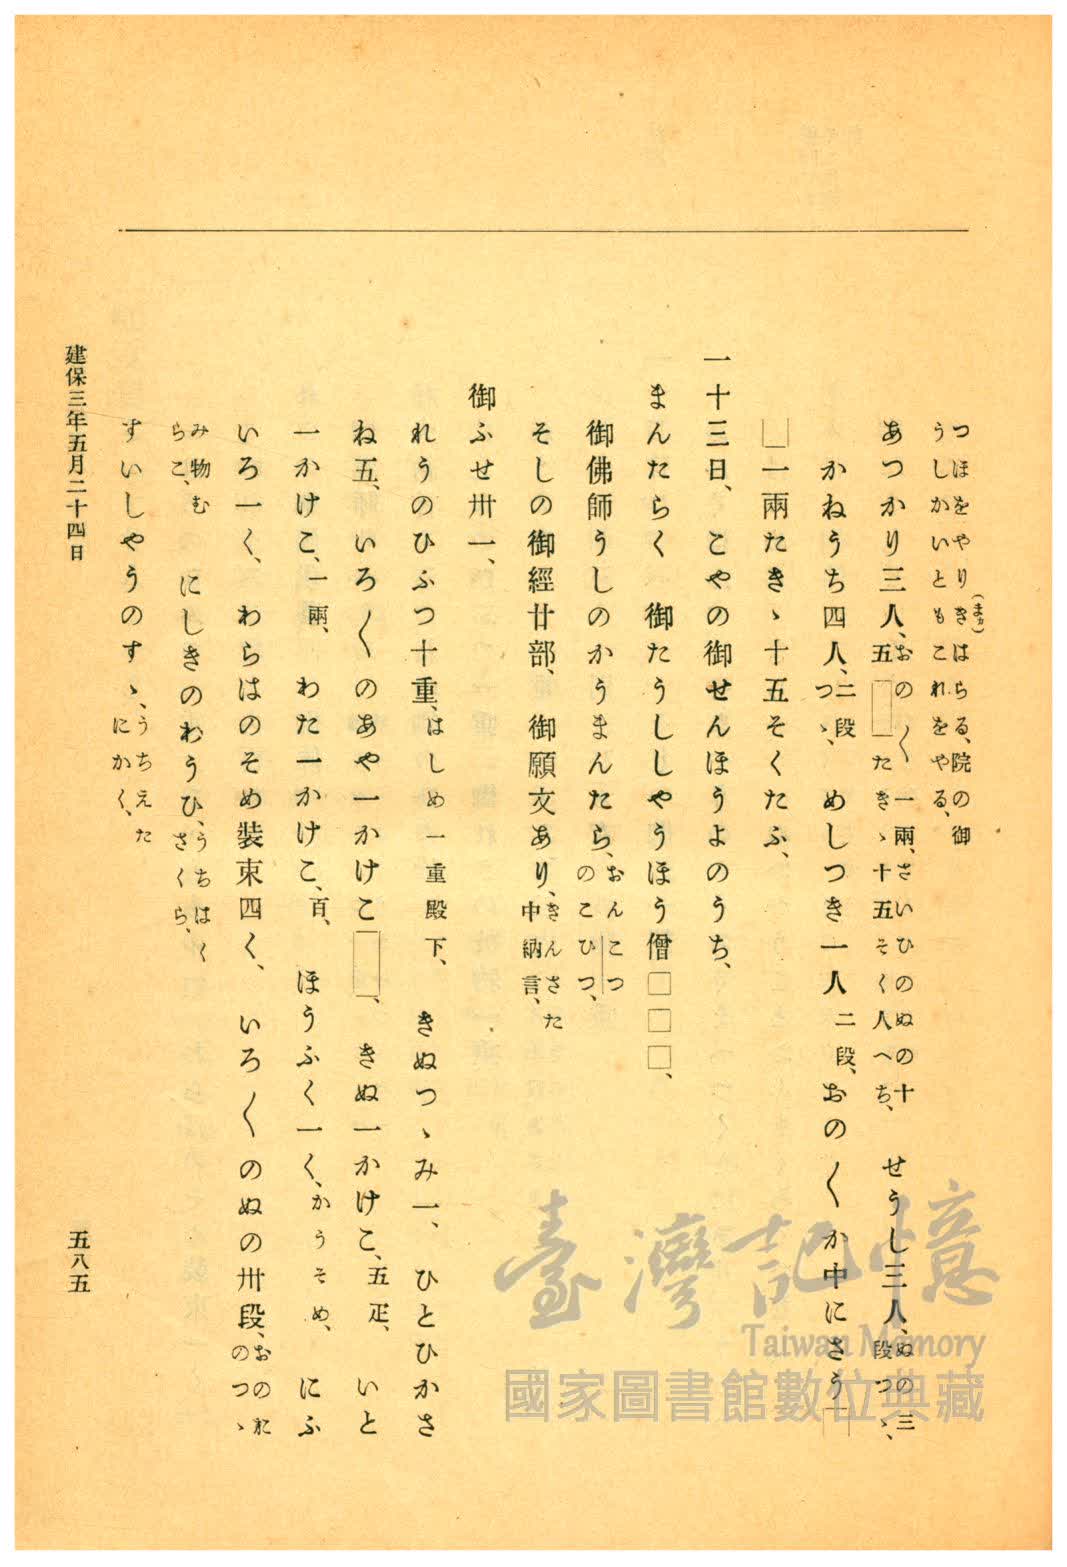 つほをやりきはらる、院の御
(まヵ)
うしかいともこれをやる、
あつかり三人、おの〱一兩、さいひのぬの十
五□たきゝ十五そく人へち、　せうし三人、ぬの三
段つゝ、
かねうち四人、二段
つゝ、めしつき一人二段、おの〱か中にさう□
□一兩たきゝ十五そくたふ、
一十三日、こやの御せんほうよのうち、
まんたらく　御たうししやうほう僧□□□、
御佛師うしのかうまんたら、おんこつ
のこひつ、
そしの御經廿部、御願文あり、きんさた
中納言、
御ふせ卅一、
れうのひふつ十重、はしめ一重殿下、　きぬつゝみ一、ひとひかさ
ね五、いろ〱のあや一かけこ□、きぬ一かけこ、五疋、　いと
一かけこ、一兩、　わた一かけこ、百、　ほうふく一く、かうそめ、　にふ
いろ一く、わらはのそめ裝束四く、いろ〱のぬの卅段、おのれ
のつゝ
み物む
らこ、　にしきのわうひ、うちはく
さくら、
すいしやうのすゝ、うちえた
にかく、
建保三年五月二十四日
五八五
臺灣記憶
Taiwan Memory
國家圖書館數位典藏